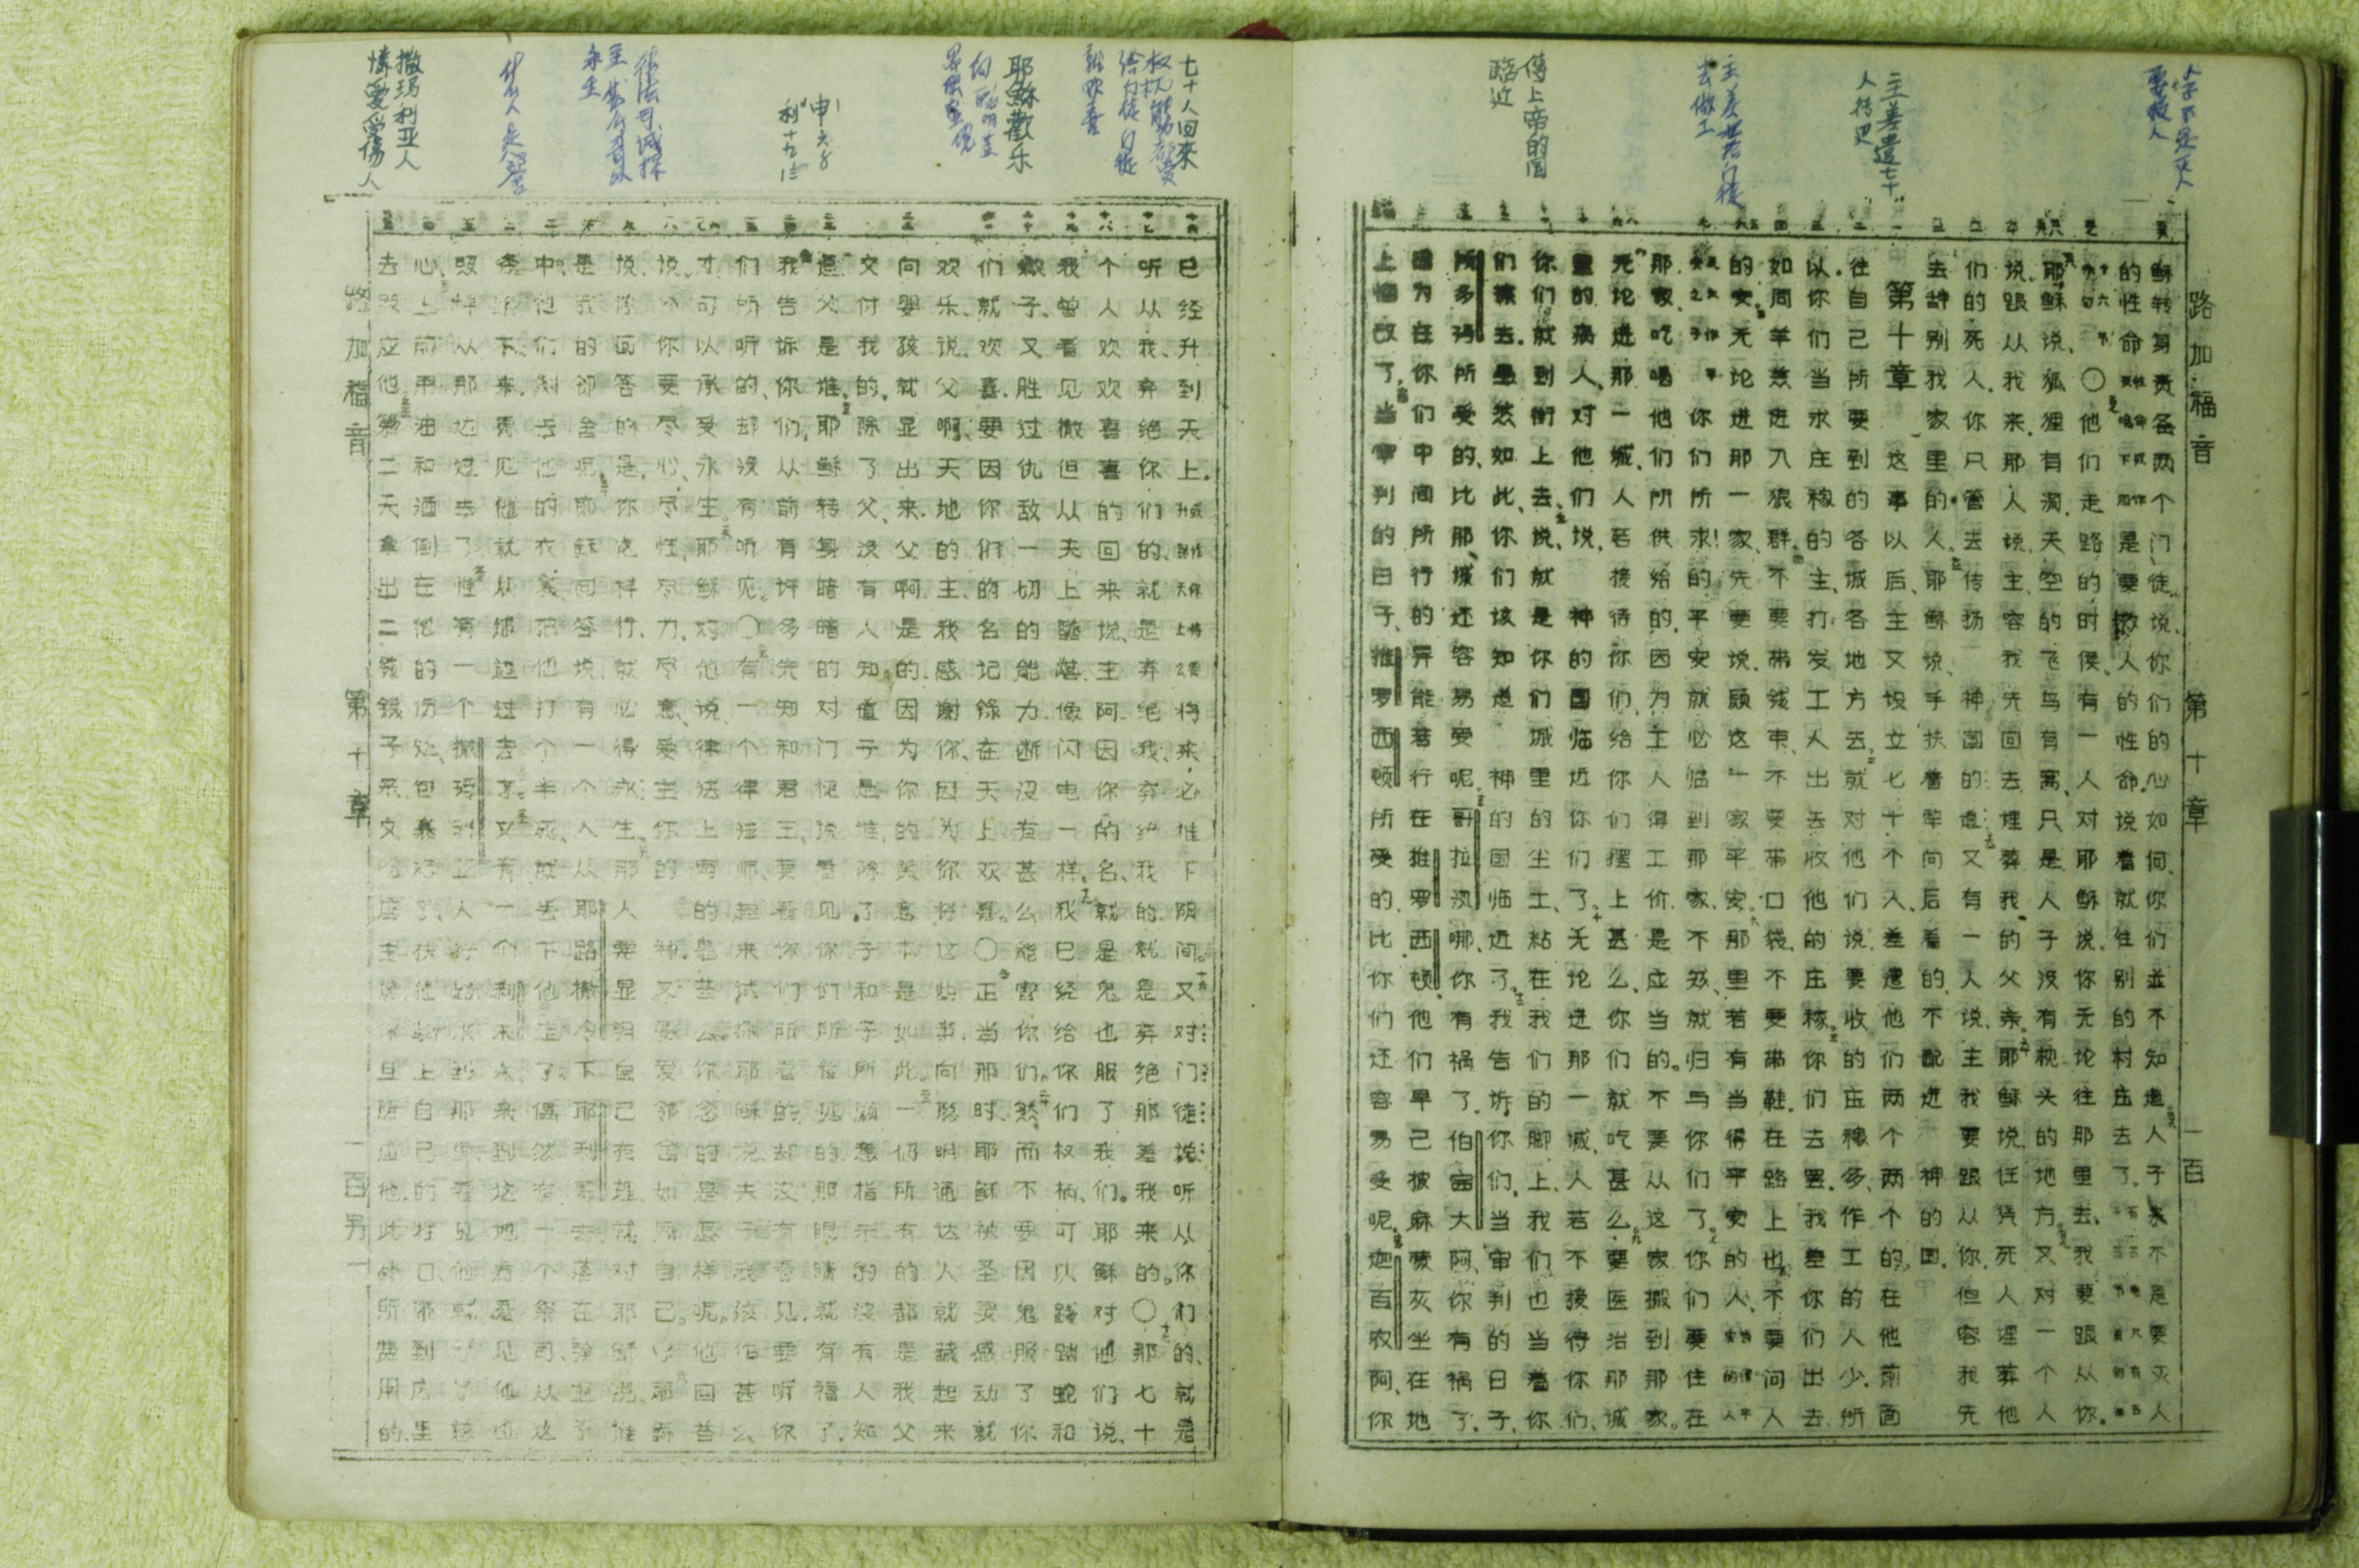 人子不是灭人
要救人
主差遣七十
人传道
主差其若门徒
去做工
傳上帝的国
临近
路加福音 第十章 一百
稣转身责备两个门徒说、你们的心如何、你们並不知道、人子来不是要灭人
的性命是要救人的性命、说着就往别的村庄去了、
○他们走路的时侯、有一人对耶稣说、你无论往那里去、我要跟从你、
耶稣说、狐狸有洞、天空的飞鸟有窝、只是人子没有枕头的地方、又对一个人
说、跟从我来、那人说、主、容我先回去埋葬我的父亲、耶稣说、任凭死人埋葬他
们的死人、你只管去传扬 神国的道、又有一人说、主、我要跟从你、但容我先
去辞别我家里的人、耶稣说、手扶着犂向后看的、不配进 神的国、
第十章 这事以后、主又设立七十个人、差遣他们两个两个的、在他前面
往自己所要到的各城各地方去、就对他们说、要收的庄稼多、作工的人少、所
以你们当求庄稼的主、打发工人出去收他的庄稼、你们去罢、我差你们出去、
如同羊羔进入狼群、不要带钱囊、不要带口袋、不要带鞋、在路上也不要问人
的安、无论进那一家、先要说、愿这一家平安、那里若有当得平安的人、
你们所求的平安就必临到那家、不然就归与你们了、你们要住在
那家、吃喝他们所供给的、因为工人得工价、是应当的。不要从这家搬到那家。
无论进那一城、人若接待你们、给你们摆上甚么、你们就吃甚么、要医治那城
里的病人、对他们说、 神的国临近你们了、无论进那一城、人若不接待你们、
你们就到街上去、说、就是你们城里的尘土、粘在我们的脚上、我们也当着你
们擦去、虽然如此、你们该知道 神的国临近了、我告诉你们、当审判的日子、
所多玛所受的、比那城还容易受呢、哥拉汛哪、你有祸了、伯赛大阿、你有祸了、
因为在你们中间所行的异能、若行在推罗西顿、他们早已披麻蒙灰坐在地
上悔改了、当审判的日子、推罗西顿所受的、比你们还容易受呢、迦百农阿、你
七十人回來
耶穌歡乐
撒玛利亚人
憐爱受傷人
已经升到天上、将来必推下阴间。又对门徒说、听从你们的、就是
听从我、弃绝你们的、就是弃绝我、弃绝我的、就是弃绝那差我来的。○那七十
个人欢欢喜喜的回来说、主阿、因你的名、就是鬼也服了我们。耶稣对他们说、
我曾看见撒但从天上坠落、像闪电一样、我已经给你们权柄、可以践踏蛇和
蝎子、又胜过仇敌一切的能力、断没有甚么能害你们。然而不要因鬼服了你
们就欢喜、要因你们的名记錄在天上欢喜。○正当那时、耶稣被圣灵感动就
欢乐、说、父啊、天地的主、我感谢你、因为你将这些事、向聪明通达人就藏起来
向婴孩就显出来、父啊、是的、因为你的美意本是如此、一切所有的都是我父
交付我的、除了父、没有人知道子是谁、除了子和子所愿意指示的、没有人知
道父是谁、耶稣转身暗暗的对门徒说、看见你们所看见的、那眼睛就有福了、
我告诉你们、从前有许多先知和君王、要看你们所看的、却没有看见、要听你
们所听的、却没有听见。○有一个律法师、起来试探耶稣说、夫子、我该作甚么
才可以承受永生。耶稣对他说、律法上写的是甚么、你念的是怎样呢。他回答
说、你要尽心、尽性、尽力、尽意、爱主你的 神、又要爱邻舍如同自己。耶稣
说、你回答的是、你这样行、就必得永生、那人要显明自己有理、就对耶稣说、谁
是我的邻舍呢、耶稣回答说、有一个人从耶路撒冷下耶利哥去、落在强盗手
中、他们剥去他的衣裳、把他打个半死、就丢下他走了、偶然有一个祭司、从这
条路下来、看见他就从那边过去了、又有一个利未人、来到这地方、看见他、也
照样从那边过去了、惟有一个撒玛利亚人、行路来到那里、看见他就动了慈
心、上前用油和酒倒在他的伤处、包裹好了、扶他骑上自己的牲口、带到店里
去照应他、第二天拿出二钱银子来、交给店主说、你且照应他、此外所费用的、
路加福音 第十章 一百另一